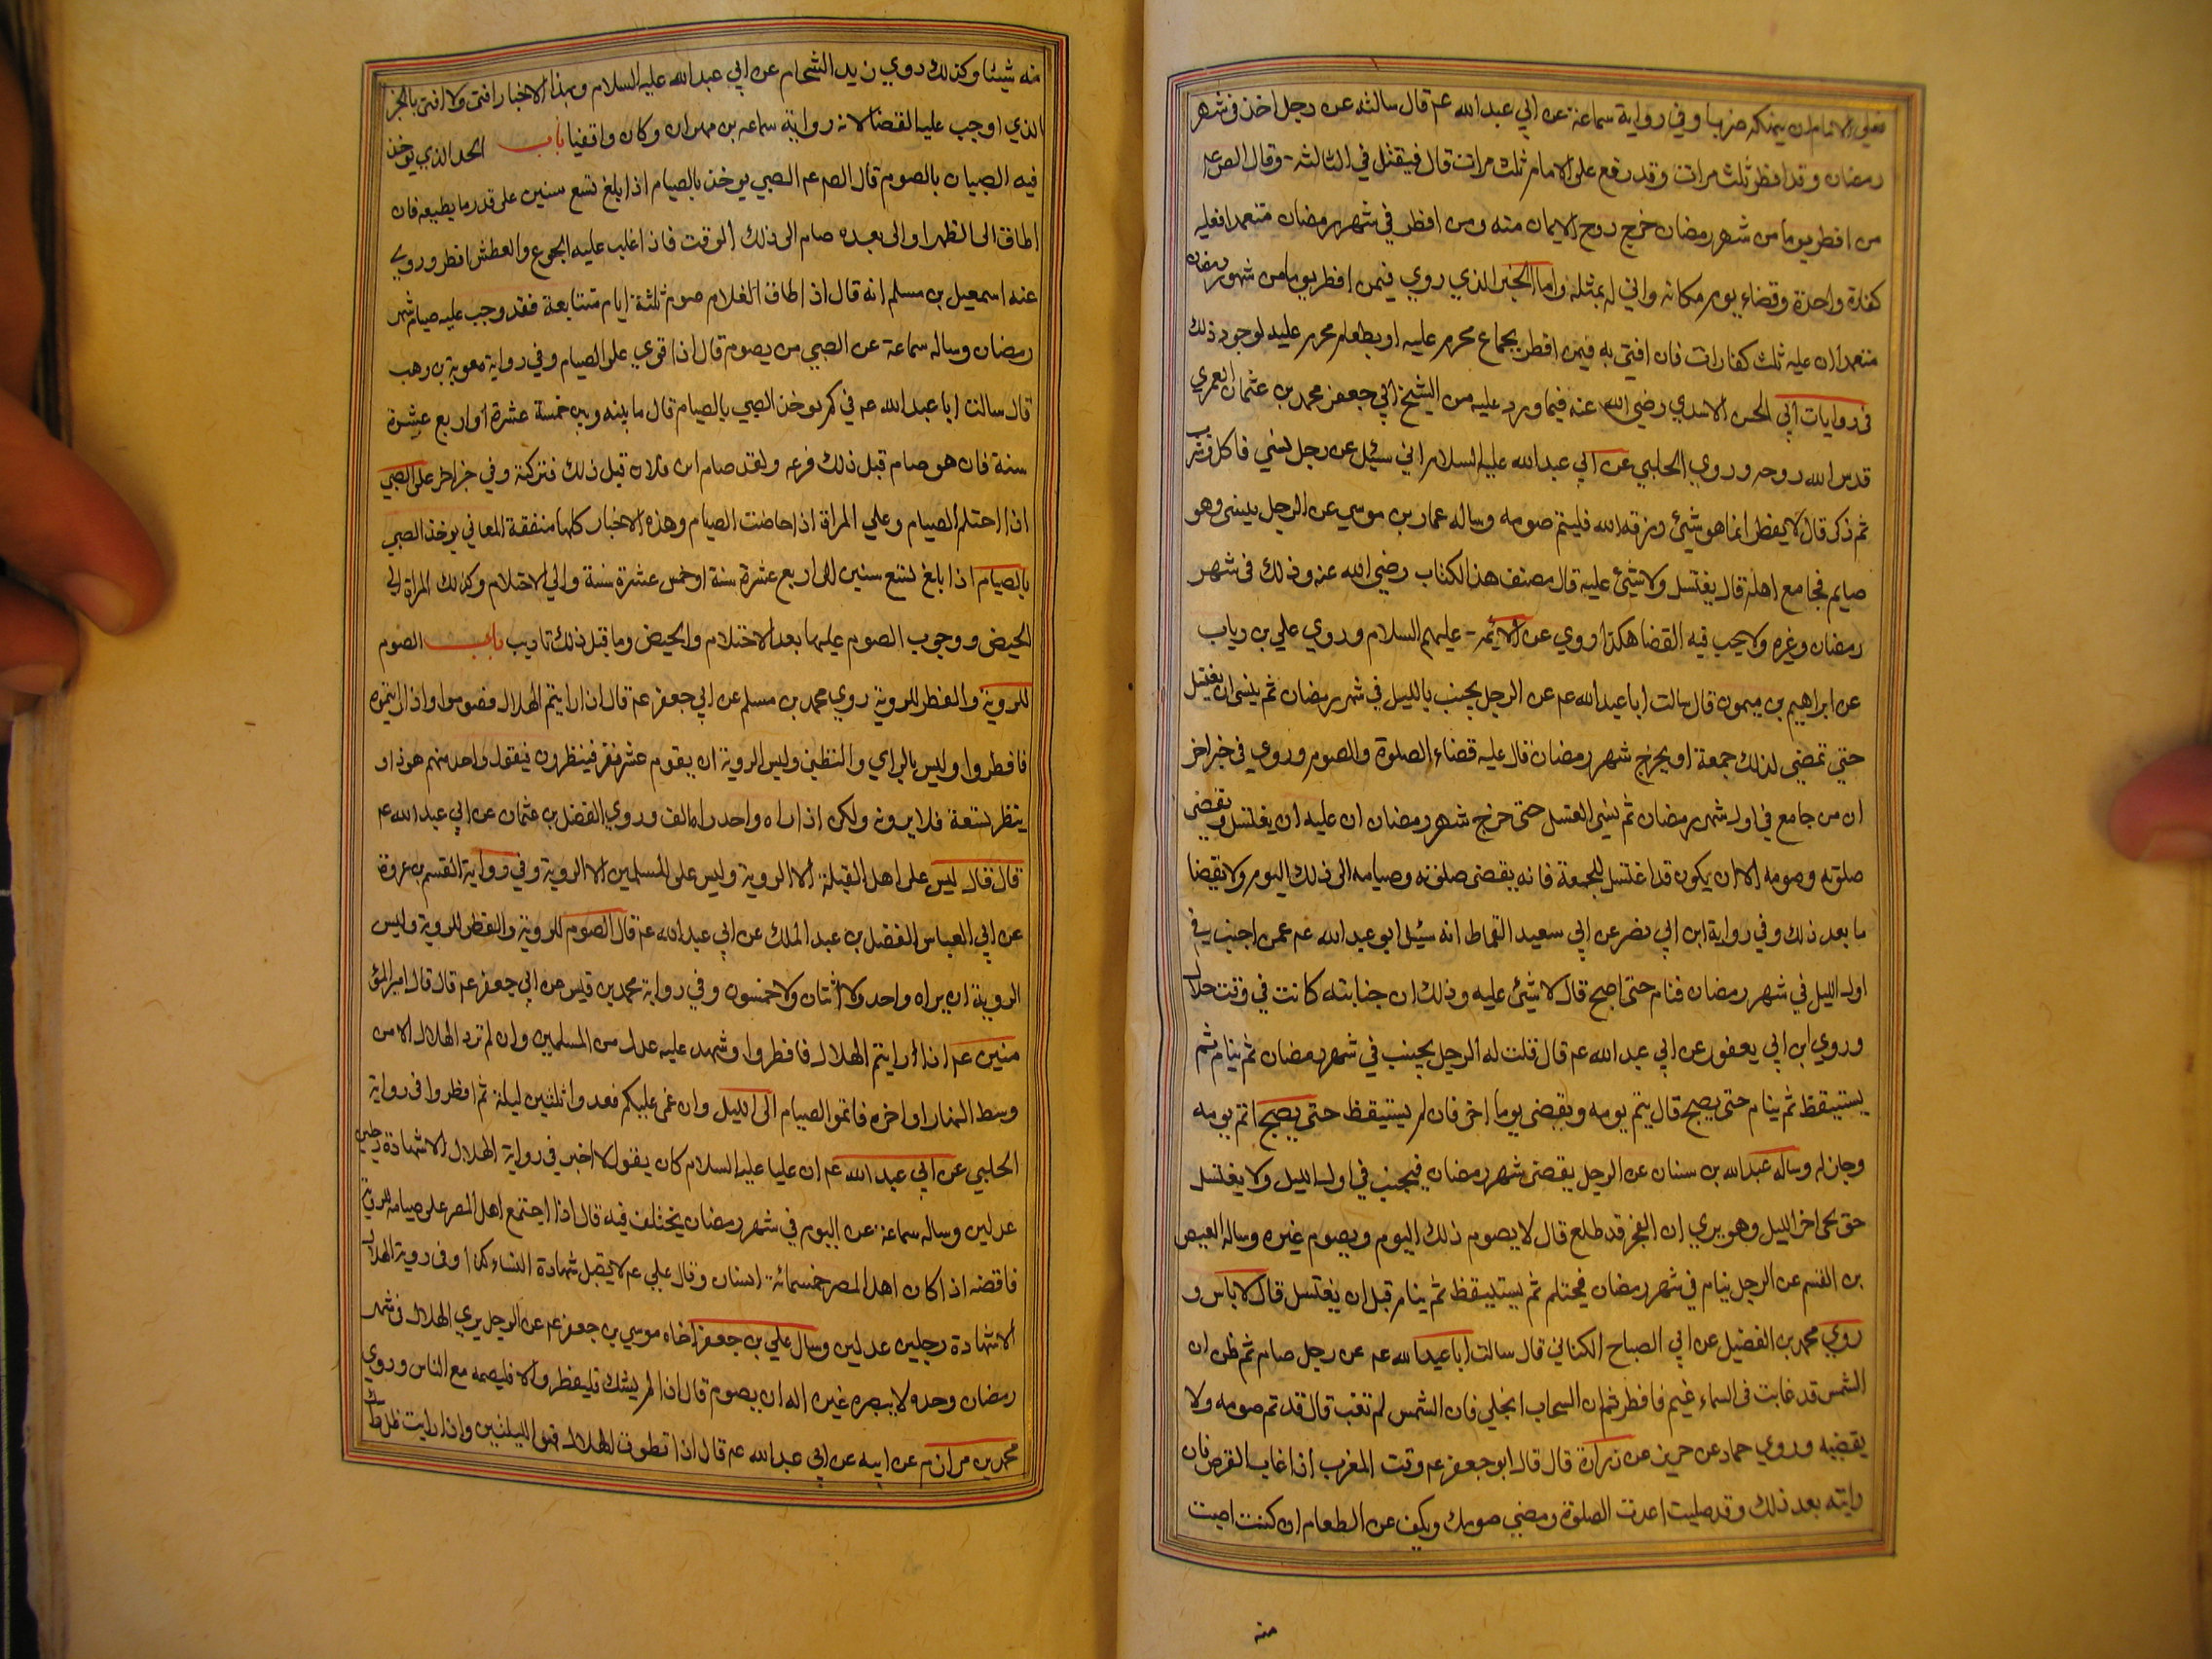 فعلي الامام ان ينهكه ضربا وفي رواية سماعة عن ابي عبد الله عم قال سالته عن رجل اخذ في شهر
رمضان وقد افطر ثلث مرات وقد رفع على الامام ثلث مرات قال فيقتل في الثالثه وقال الص عم
من افطر يوما من شهر رمضان خرج روح الايمان منه ومن افطر في شهر رمضان متعمدا فعليه
كفارة واحدة وقضاء يوم مكانه واني له بمثله واما الخبر الذي روي فيمن افطر يوما من شهر رمضان
متعمدا ان عليه ثلث كفارات فان افتي به فيمن افطر بجماع محرم عليه او بطعام محرم عليه لوجود ذلك
في روايات ابي الحسن الاسدي رضي الله عنه فيما ورد عليه من الشيخ ابي جعفر محمد بن عثمان العمري
قدس الله روحه وروي الحلبي عن ابي عبد الله عليه السلام اني سئل عن رجل نسي فاكل وشرب
ثم ذكر قال لا يفطر انما هو شيئ رزقه الله فليتم صومه وساله عمار بن موسي عن الرجل ينسى وهو
صايم فجامع اهله قال يغتسل ولا شيئ عليه قال مصنف هذا الكتاب رضي الله عنه وذلك في شهر
رمضان وغيره ولا يجب فيه القضا هكذا روي عن الائمه عليهم السلام وروي علي بن رياب
عن ابراهيم بن ميمون قال سالت ابا عبد الله عم عن الرجل يجنب بالليل في شهر رمضان ثم ينسى ان يغتسل
حتى تمضي لذلك جمعة او يخرج شهر رمضان قال عليه قضاء الصلوة والصوم وروي في خبر اخر
ان من جامع في اول شهر رمضان ثم نسي الغسل حتى خرج شهر رمضان ان عليه ان يغتسل ويقضي
صلوته وصومه الا ان يكون قد اغتسل للجمعة فانه يقضي صلوته وصيامه الى ذلك اليوم ولا يقضا
ما بعد ذلك وفي رواية ابن ابي نصر عن ابي سعيد القماط انه سئل ابو عبد الله عم عمن اجنب في
اول الليل في شهر رمضان فنام حتى اصبح قال لا شيئ عليه وذلك ان جنابته كانت في وقت حلال
وروي ابن ابي يعفور عن ابي عبد الله عم قال قلت له الرجل يجنب في شهر رمضان ثم ينام ثم
يستيقظ ثم ينام حتى يصبح قال يتم يومه ويقضي يوما اخر فان لم يستيقظ حتى يصبح اتم يومه
وجاز له وساله عبد الله بن سنان عن الرجل يقضي شهر رمضان فيجنب في اول الليل ولا يغتسل
حتى يجي اخر الليل وهو يري ان الفجر قد طلع قال لا يصوم ذلك اليوم ويصوم غيره وساله العيص
بن القسم عن الرجل ينام في شهر رمضان فيحتلم ثم يستيقظ ثم ينام قبل ان يغتسل قال لا باس و
روي محمد بن الفضيل عن ابي الصباح الكناني قال سالت ابا عبد الله عم عن رجل صام ثم ظن ان
الشمس قد غابت في السماء غيم فافطر ثم ان السحاب انجلي فان الشمس لم تغب قال قد تم صومه ولا
يقضيه وروي حماد عن حريز عن زرارة قال قال ابو جعفر عم وقت المغرب اذا غاب القرص فان
رايته بعد ذلك وقد صليت اعدت الصلوة ومضي صومك وتكف عن الطعام ان كنت اصبت
منه
منه شيئا وكذلك روي زيد الشحام عن ابي عبد الله عليه السلام وبهذا الاخبار افتي ولا افتي بالخبر
الذي اوجب عليه القضا لانه رواية سماعه بن مهران وكان واقفيا باب الحد الذي يوخذ
فيه الصبيان بالصوم قال الص عم الصبي يوخذ بالصيام اذا بلغ تسع سنين على قدر ما يطيقه فان
اطاق الى الظهر او الى بعده صام الى ذلك الوقت فاذا غلب عليه الجوع والعطش افطر وروي
عنه اسمعيل بن مسلم انه قال اذا اطاق الغلام صوم ثلثة ايام متتابعة فقد وجب عليه صيام شهر
رمضان وساله سماعة عن الصبي من يصوم قال اذا قوي على الصيام وفي رواية معوية بن وهب
قال سالت ابا عبد الله عم في كم يوخذ الصبي بالصيام قال ما بينه وبين خمسة عشرة او اربع عشرة
سنة فان هو صام قبل ذلك فدعه ولقد صام ابن فلان قبل ذلك فتركته وفي خبر اخر على الصبي
اذا احتلم الصيام وعلي المراة اذا حاضت الصيام وهذه الاخبار كلها متفقة المعاني يوخذ الصبي
بالصيام اذا بلغ تسع سنين الى اربع عشرة سنة او خمس عشرة سنة والى الاحتلام وكذلك المراة الى
الحيض ووجوب الصوم عليها بعد الاحتلام والحيض وما قبل ذلك تاديب باب الصوم
للروية والفطر للروية روي محمد بن مسلم عن ابي جعفر عم قال اذا رايتم الهلال فصوموا واذا رايتموه
فافطروا وليس بالراي والتظني وليس الروية ان يقوم عشر نفر فينظرون فيقول واحد منهم هوذا و
ينظر تسعة فلا يرونه ولكن اذا راه واحد راه الف وروي الفضل بن عثمان عن ابي عبد الله عم
قال قال ليس على اهل القبلة الا الروية وليس على المسلمين الا الروية وفي رواية القسم بن عروة
عن ابي العباس الفضل بن عبد الملك عن ابي عبد الله عم قال الصوم للروية والفطر للروية وليس
الروية ان يراه واحد ولا اثنان ولا خمسون وفي رواية محمد بن قيس عن ابي جعفر عم قال قال امير المؤ
منين عم اذا رايتم الهلال فافطروا وشهد عليه عدل من المسلمين وان لم ترو الهلال الا من
وسط النهار او اخره فاتموا الصيام الى الليل وان غمى عليكم فعدوا ثلثين ليلة ثم افطروا في رواية
الحلبي عن ابي عبد الله عم ان عليا عليه السلام كان يقول لا اجيز في رواية الهلال الا شهادة رجلين
عدلين وساله سماعة عن اليوم في شهر رمضان يختلف فيه قال اذا اجتمع اهل المصر على صيامه للروية
فاقضه اذا كان اهل المصر خمسمائة انسان وقال علي عم لا يقبل شهادة النساء وفي روية الهلال
الا شهادة رجلين عدلين وسال علي بن جعفر اخاه موسي بن جعفر عم عن الرجل يري الهلال في شهر
رمضان وحده لا يبصره غيره اله ان يصوم قال اذا لم يشك فليفطر والا فليصمه مع الناس وروي
محمد بن مرازم عن ابيه عن ابي عبد الله عم قال اذا تطوق الهلال فهو لليلتين واذا رايت ظل